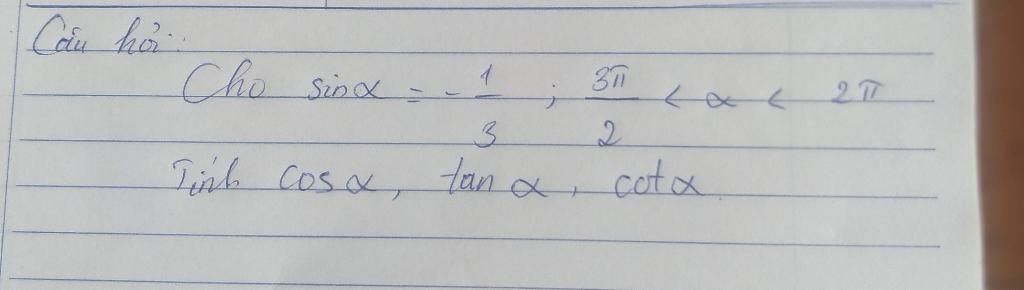 Câu hỏi:
Cho sinα = - 1/3 ; 3π/2 < α < 2π
Tính cosα, tanα, cotα